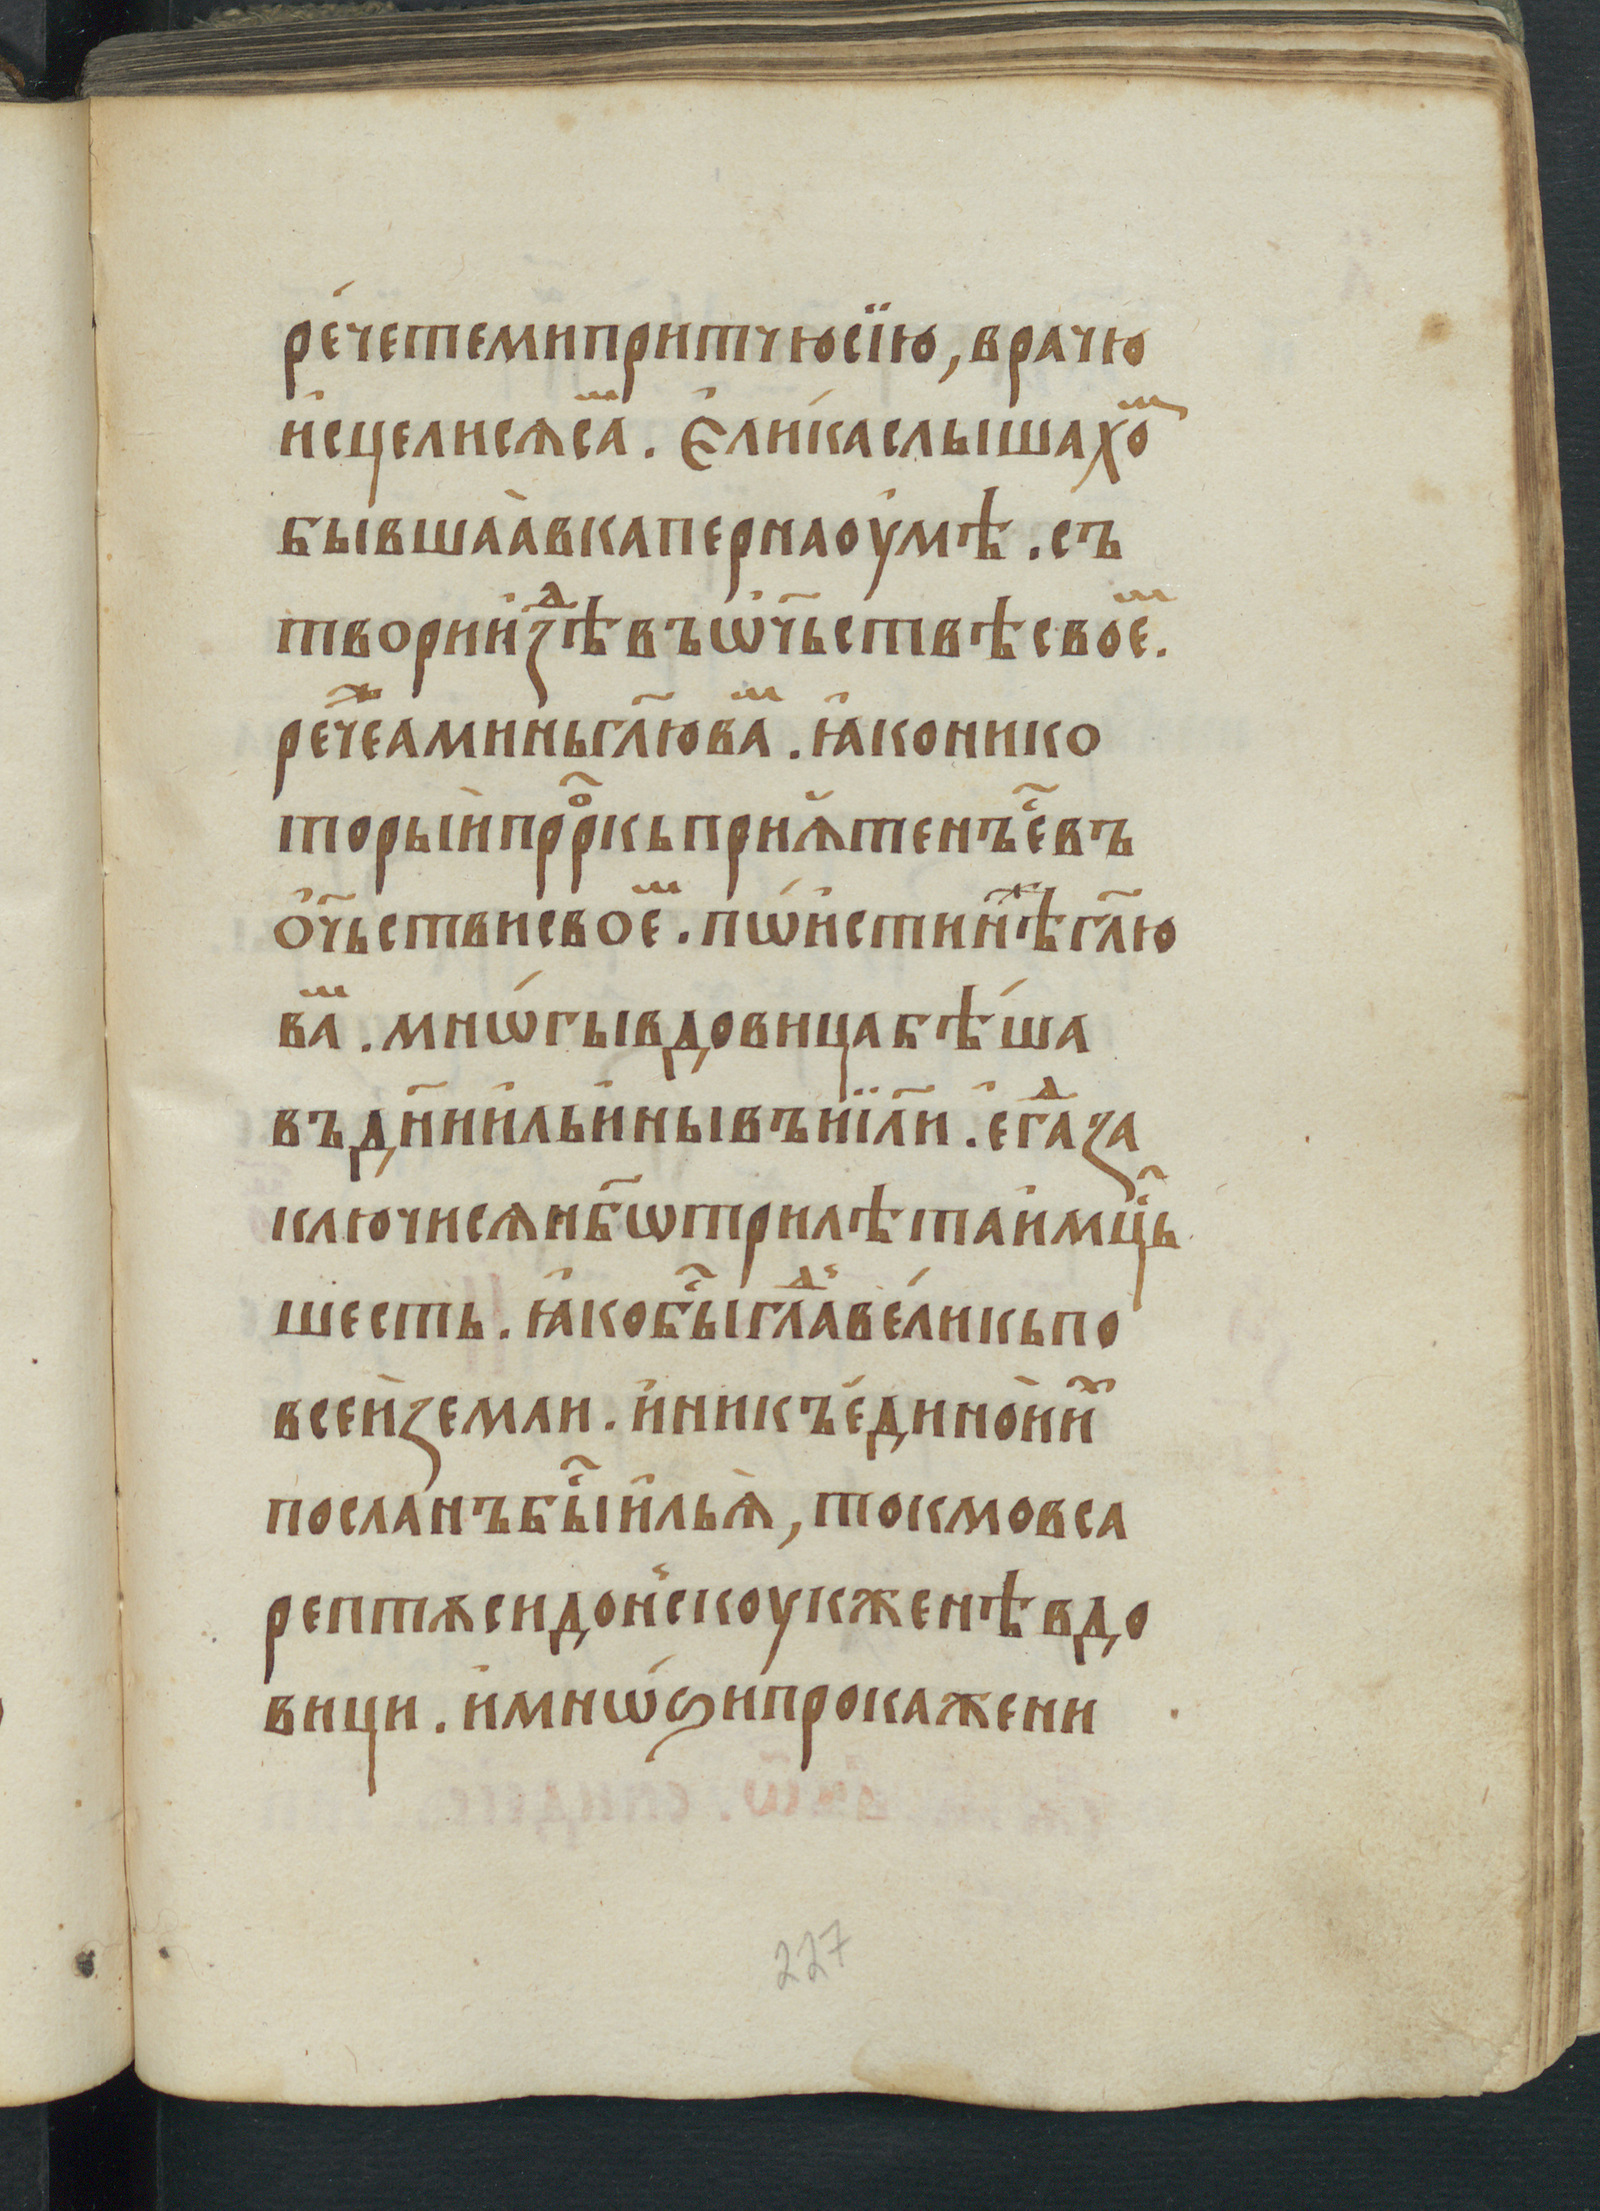 ре́четемипритчюсїю, врачю
и҆сцелисѧсаⷨ. Є҆ли́каслышахоⷨ
бывшаа̀вкапернаоу҆мѣ. съ
твориии҆зⷣѣвъѡ҆ч҃ьствѣсвоеⷨ.
ре́чеⷤаминьгл҃юваⷨ. ꙗ҆конико
торыйпрⷪ҇ркьприѧ̆тенъе҆ⷭ҇въ
о҆ч҃ьствисвоеⷨ. пѡ́и҆стинⷤѣгл҃ю
ваⷨ. мнѡ́гывдовицабѣ́ша
въдн҃ии҆льи҆нывъиї҃ли. е҆гаⷣза
ключисѧнб҃ѡтрилѣтаи҆мцⷭ҇ь
шесть. ꙗ҆кобыⷭ҇глаⷣве́ликьпо
всейземли. и҆никъе҆дино̀йиⷯ
посланъбыⷭ҇и҆льѧ̀, токмовса
рептѧсидонⷭкоукженѣвдо
вици. и҆мнѡ́ѕипрокажени
227